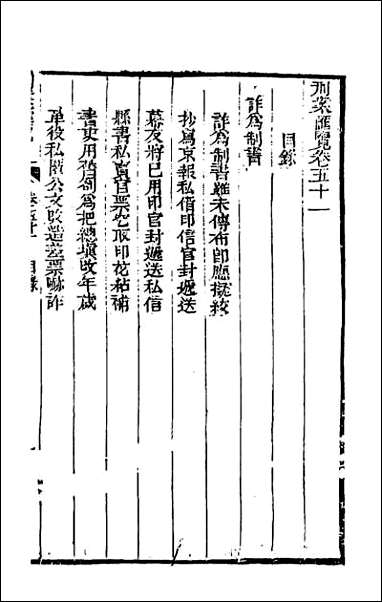 刑案匯覽卷五十一
目錄
詐爲制書
詐爲制書雖未傳布卽應擬絞
抄寫京報私借印信官封遞送
幕友將已用印官封遞送私信
縣書私賣官票挖取印花粘補
書吏用舊劄爲把總塡改年歲
革役私閱公文改造差票嚇詐
卷五十一 目錄